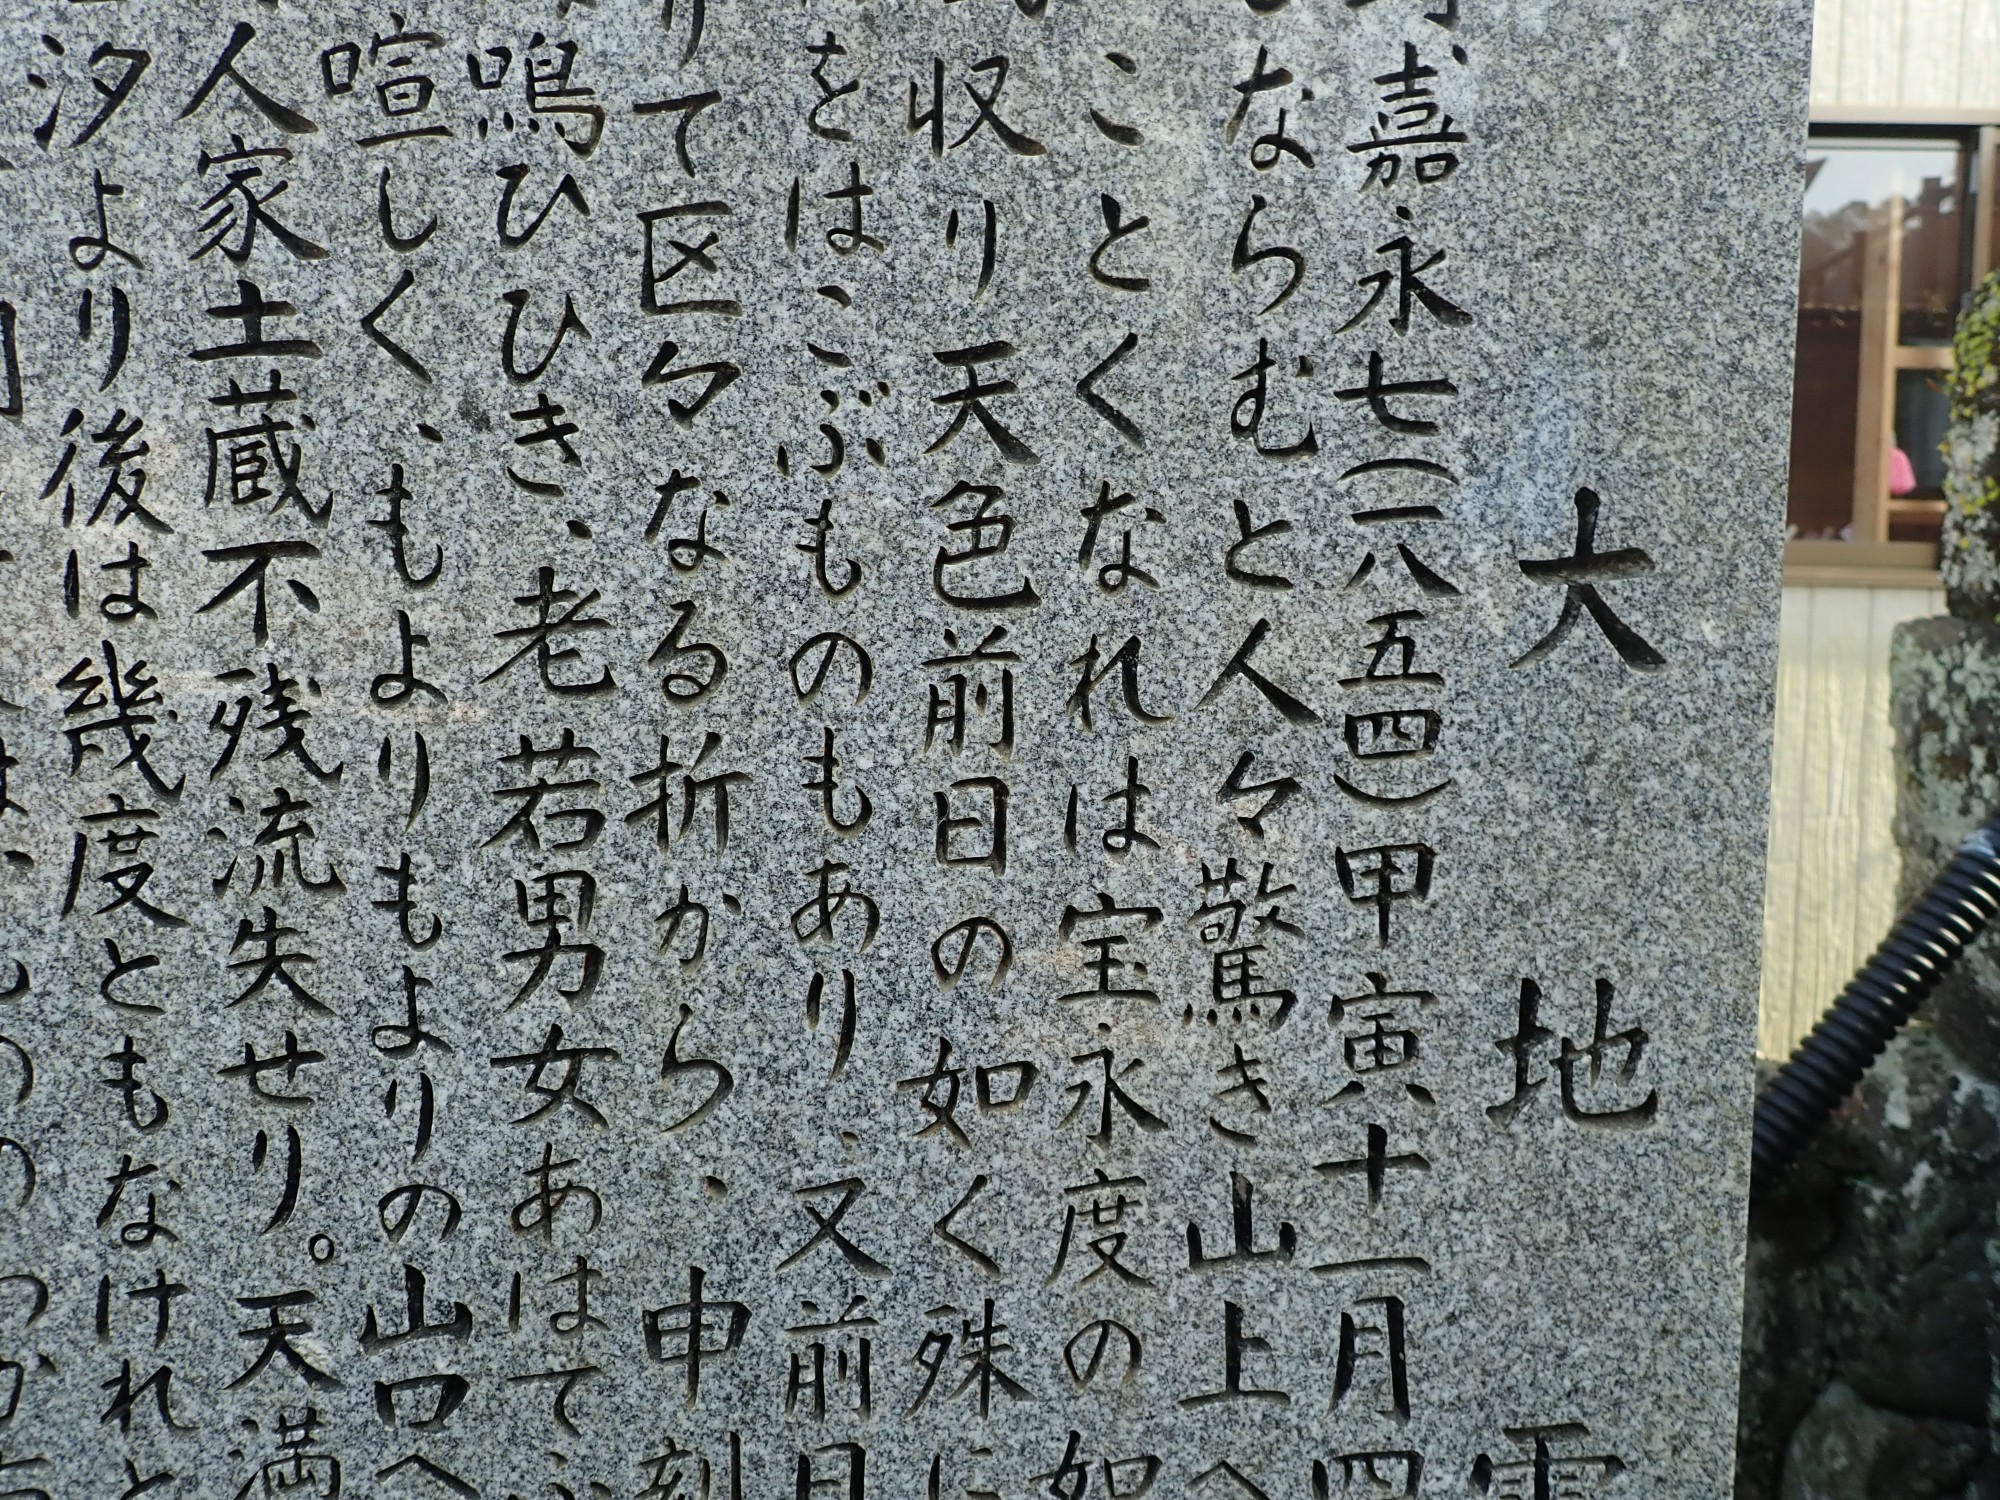 大地
嘉永七(一八五四)甲寅十一月四
ならむと人々驚き山上へ
ことくなれは宝永度の如
収り天色前日の如く殊に
をはこぶものもあり、又前日
りて区々なる折から、申刻
鳴ひひき、老若男女あはてふ
喧しく、もよりもよりの山口へ
人家土蔵不残流失せり。天満
汐より後は幾度ともなけれと